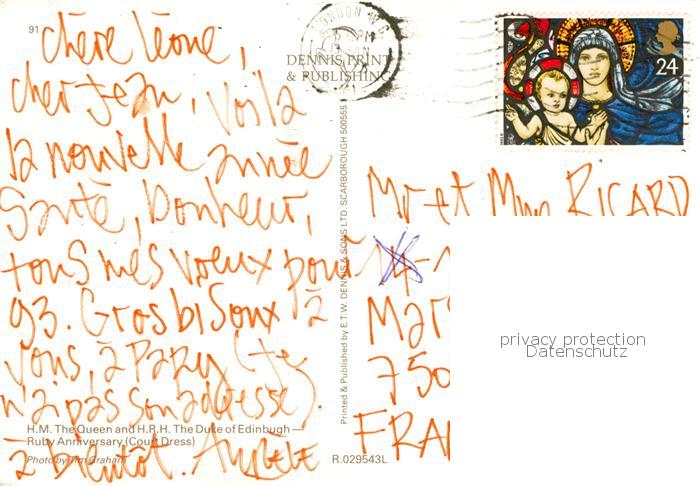 91
chère Léone,
cher Jean, voilà
la nouvelle année
Santé, Bonheur,
tous mes vœux pour
93. Gros bisoux à
vous, à Pary (je
n'ai pas son adresse).
à bientôt.
DENNIS PRINT
& PUBLISHING
LONDON W.C.
PM
24
Mr et Mm RICARD
Mar
750
FRA
privacy protection
Datenschutz
Printed & Published by E.T.W. DENNIS & SONS LTD. SCARBOROUGH 500555
H.M. The Queen and H.R.H. The Duke of Edinbugh —
Ruby Anniversary (Court Dress)
Photo by Tim Graham
R.029543L